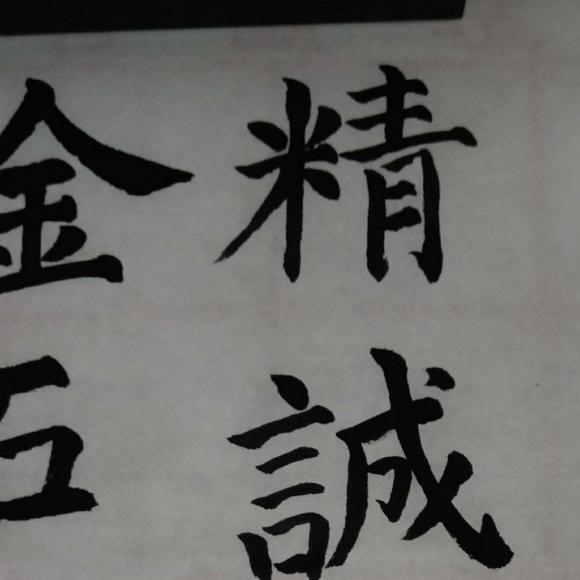 精誠
金石